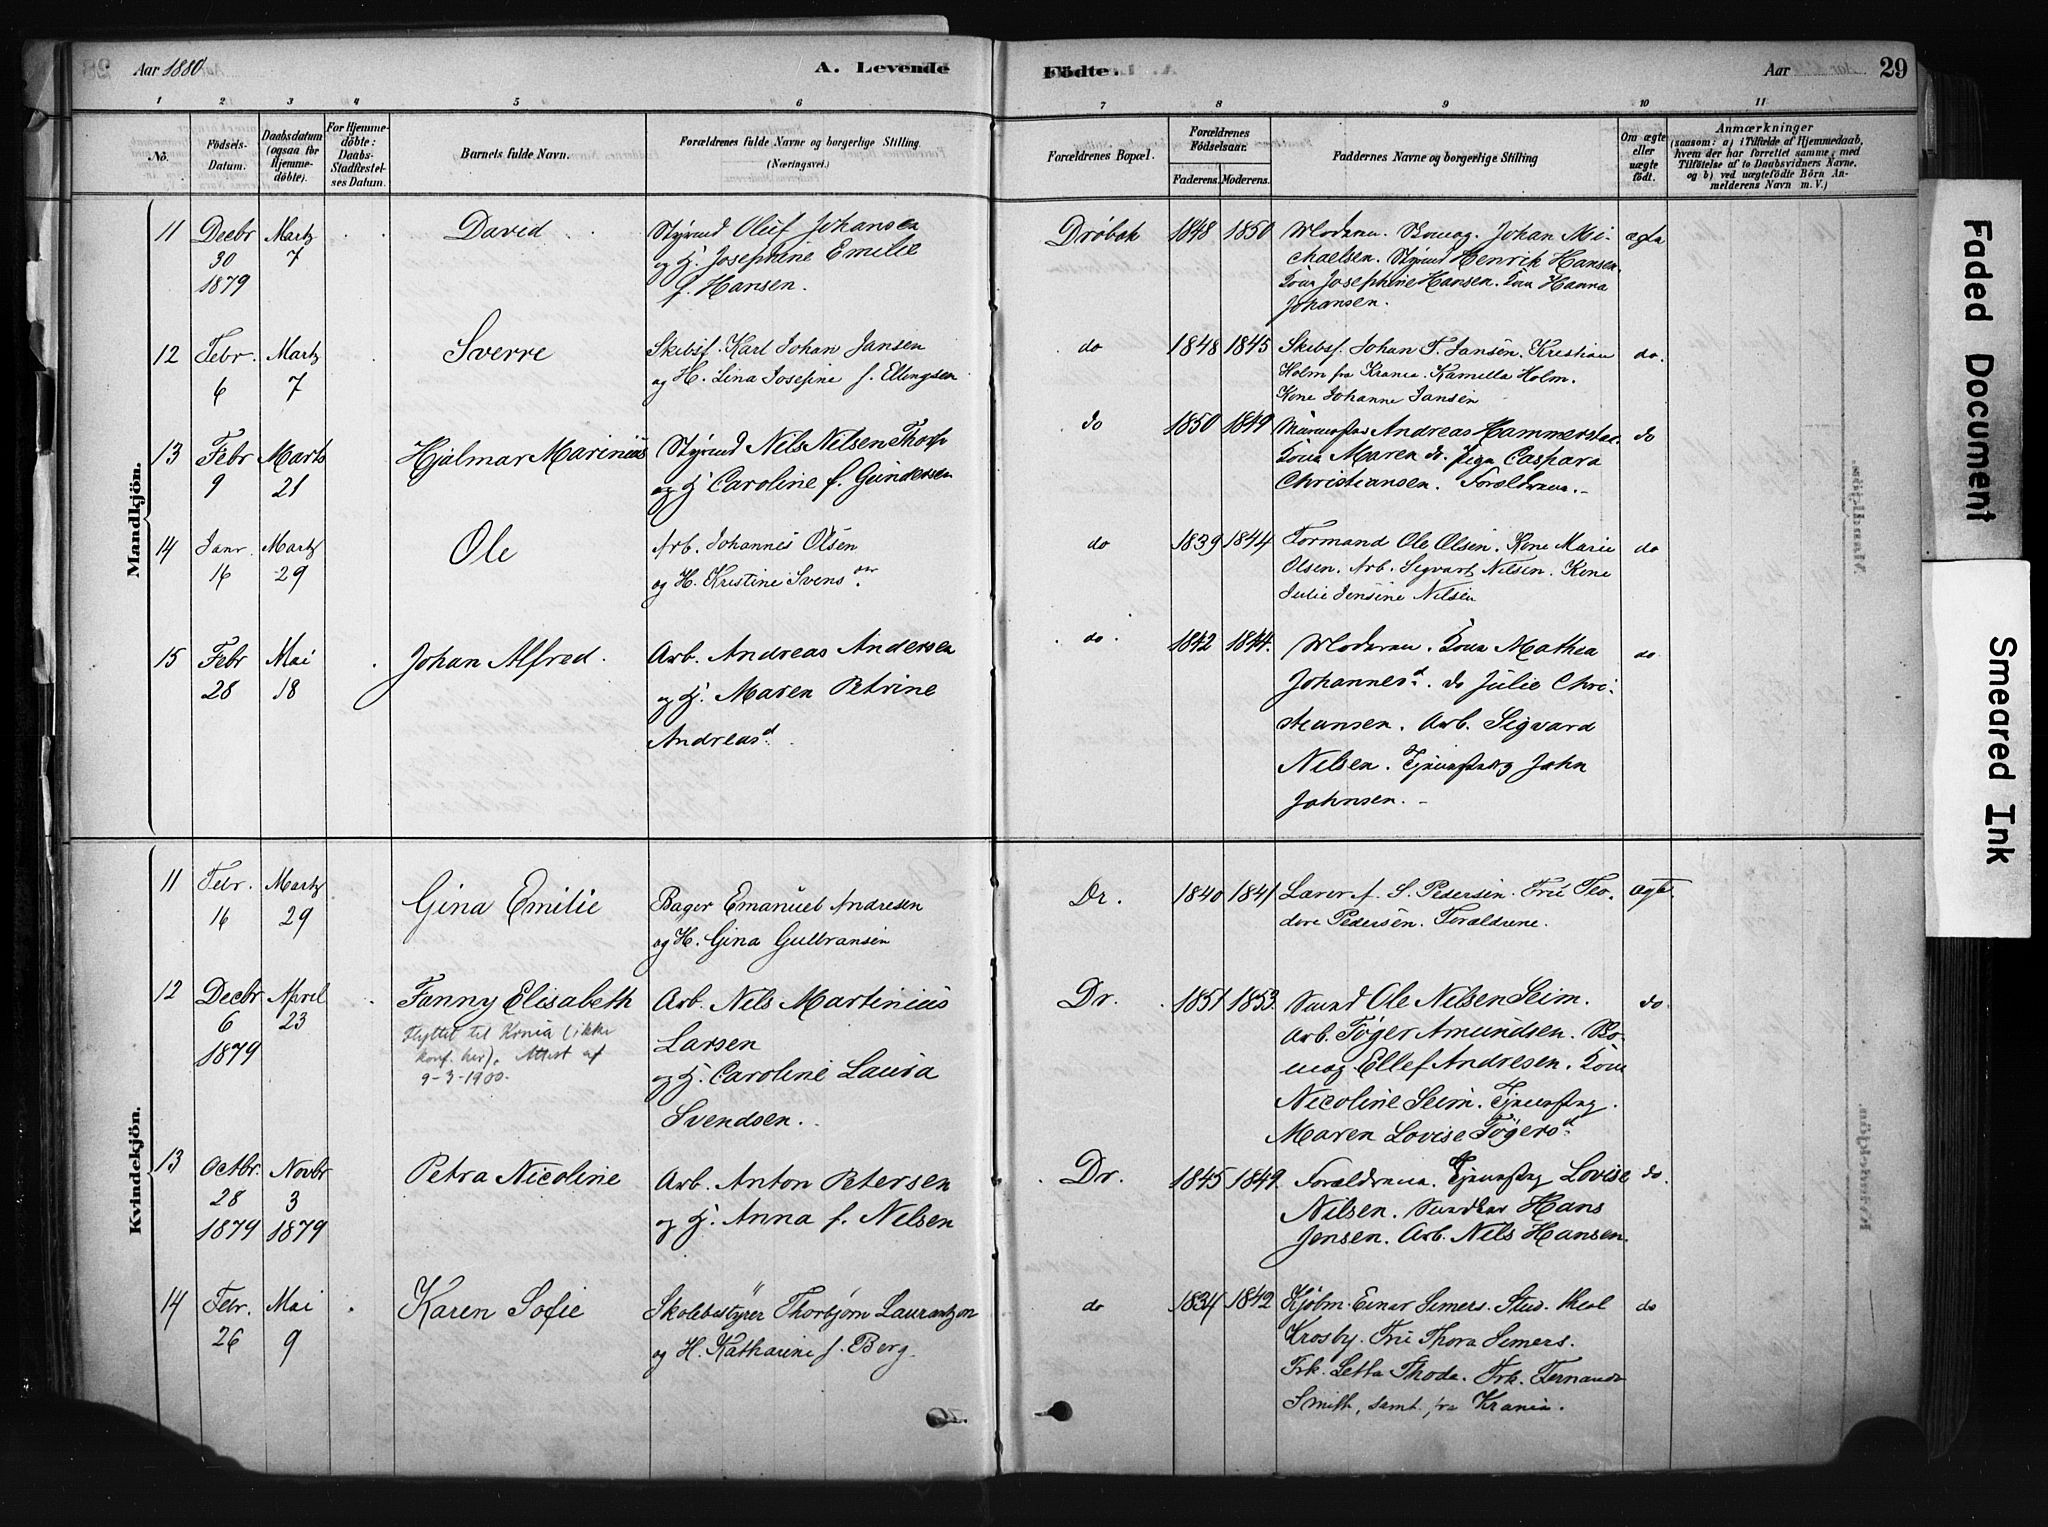 Aar 1880
A. Levende
Födte.
Aar
29
1 2 3 4 5 6 7 8 9 10 11
No.
Födsels-Datum.
Daabsdatum (ogsaa for Hjemmedöbte).
For Hjemmedöbte: Daabs-Stadfæstelses Datum.
Barnets fulde Navn.
Forældrenes fulde Navne og borgerlige Stilling (Næringsvei.)
Forældrenes Bopæl.
Forældrenes Födselsaar.
Faderens. Moderens.
Faddernes Navne og borgerlige Stilling
Om ægte eller uægte födt.
Anmærkninger
(saasom: a) i Tilfælde af Hjemmedaab, hvem der har forrettet samme, med Tilföielse af to Daabsvidners Navne, og b) ved uægtefödte Börn Anmelderens Navn m. V.)
Mandkjön.
11 Decbr 30 1879 Martz 7 David
Styrmd Oluf Johansen
og H. Josephine Emilie
f. Hansen.
Drøbak 1848 1850
Johan Mi-
chaelsen. Styrmd Henrik Hansen.
Kone Josephine Hansen. Kone Hanna
Johansen.
ægte
12 Febr. 6 Martz 7 Sverre
Skibsf. Karl Johan Jansen
og H. Lina Josefine f. Ellingsen
do 1848 1845
Skibsf. Johan F. Jansen. Kristian
Holm fra Krania. Kamilla Holm.
Kone Johanne Jansen
do.
13 Febr 9 Marts 21 Hjalmar Marinius
Styrmd Nils Nilsen Thorp
og H. Caroline f. Gundersen
do 1850 1849
Andreas Hammerstad.
Kone Maren do. Pige Caspara
Christiansen. Forældrene.
do
14 Janr. 16 Martz 29 Ole
Arb. Johannes Olsen
og H. Kristine Svens
do 1839 1844
Formand Ole Olsen. Kone Marie
Olsen. Arb. Segvart Nilsen. Kone
Julie Jensine Nilsen
do
15 Febr 28 Mai 18 Johan Alfred.
Arb. Andreas Andersen
og H. Maren Petrine
Andreasd.
do. 1842 1844.
Kone Mathea
Johannesd. do Julie Chri-
stiansen. Arb. Segvard
Nilsen. John
Johnsen.
do
Kvindekjön.
11 Febr. 16 Martz 29 Gina Emilie
Bager Emanuel Andresen
og H. Gina Gulbransen
Dr. 1840 1841
Lærer A. S. Pedersen. Frü Teo-
dore Pedersen. Forældrene.
ægte
12 Decbr 6 1879 April 23 Fanny Elisabeth
Flyttet til Krnia (ikke
konf. her). Attest af
9-3-1900.
Arb. Nils Martinius
Larsen
og H. Caroline Laura
Svendsen.
Dr. 1851 1853.
Ole Nilsen Seim.
Arb. Tøger Amundsen.
Ellef Andresen. Kone
Nicoline Seim.
Maren Lovise Tøgersd.
do
13 Octbr. 28 1879 Novbr 3 1879 Petra Nicoline
Arb. Anton Petersen
og H. Anna f. Nilsen
Dr. 1845 1849
Forældrene. Lovise
Nilsen. Hans
Jensen. Arb. Nils Hansen.
do.
14 Febr. 26 Mai 9 Karen Sofie
Skolebestyrer Thorbjørn Laurantzon
og H. Katharine f. Berg.
do 1834 1842
Kjøbm. Einar Semers. Stud. theol
Krosby. Frü Thora Semers.
Frk. Letta Thode. Frk. Fernanda
Smith, samt. fra Krania.
do
Faded Document
Smeared Ink